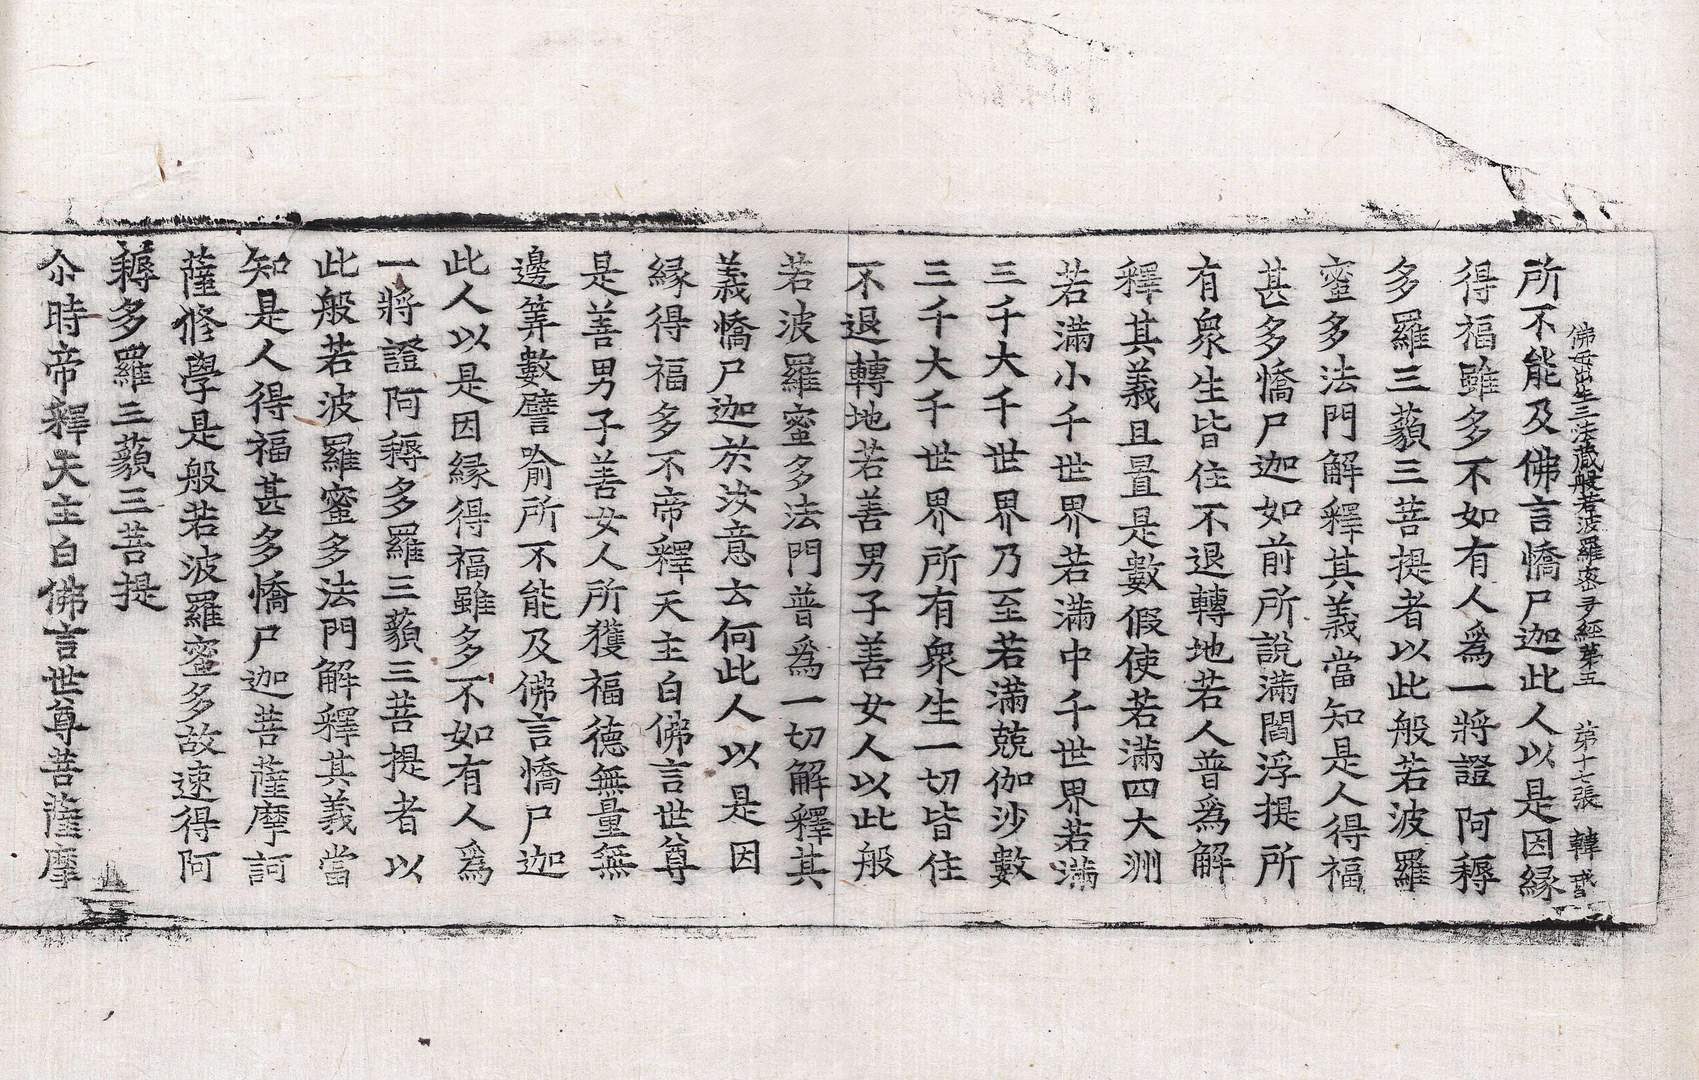 佛母出生三法藏般若波羅蜜多經第五 第十七張 韓
所不能及佛言憍尸迦此人以是因緣
得福雖多不如有人爲一將證阿耨
多羅三藐三菩提者以此般若波羅
蜜多法門解釋其義當知是人得福
甚多憍尸迦如前所說滿閻浮提所
有衆生皆住不退轉地若人普爲解
釋其義且置是數假使若滿四大洲
若滿小千世界若滿中千世界若滿
三千大千世界乃至若滿兢伽沙數
三千大千世界所有衆生一切皆住
不退轉地若善男子善女人以此般
若波羅蜜多法門普爲一切解釋其
義憍尸迦於汝意云何此人以是因
緣得福多不帝釋天主白佛言世尊
是善男子善女人所獲福德無量無
邊筭數譬喻所不能及佛言憍尸迦
此人以是因緣得福雖多不如有人爲
一將證阿耨多羅三藐三菩提者以
此般若波羅蜜多法門解釋其義當
知是人得福甚多憍尸迦菩薩摩訶
薩修學是般若波羅蜜多故速得阿
耨多羅三藐三菩提
尒時帝釋天主白佛言世尊菩薩摩